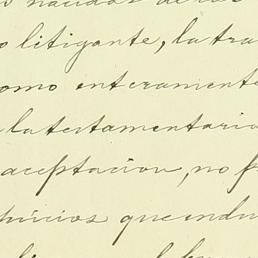 o litigante, la tra
omo enteramente
la testamentaria
aceptacion, no p
que indu